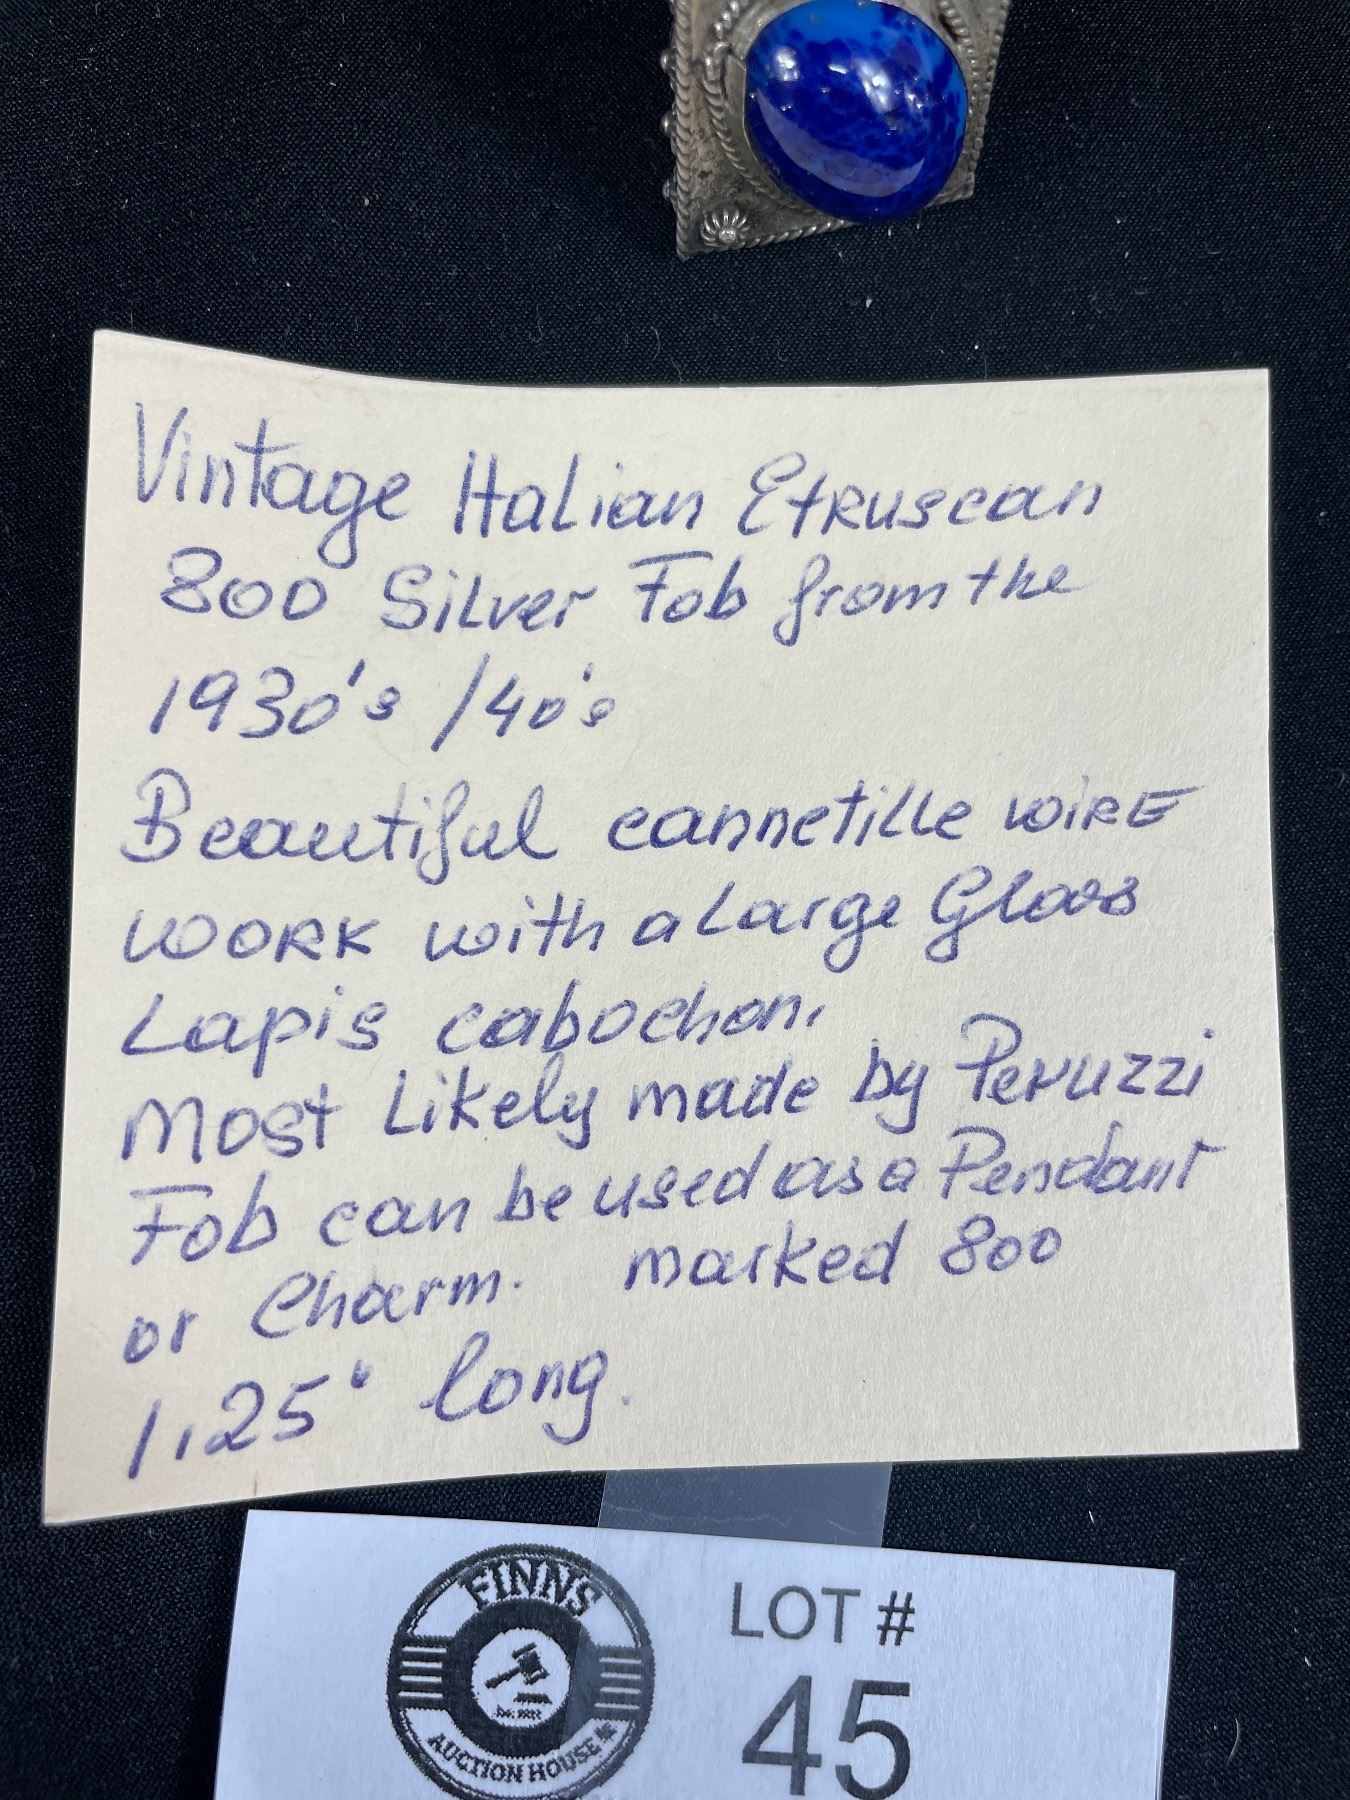 Vintage Italian Etruscan
800 Silver Fob from the
1930's /40's
Beautiful cannetille wire
work with a Large Glass
Lapis cabochon.
Most Likely made by Peruzzi
Fob can be used as a Pendant
or Charm. marked 800
1.25" long.
FINNS
AUCTION HOUSE
LOT #
45